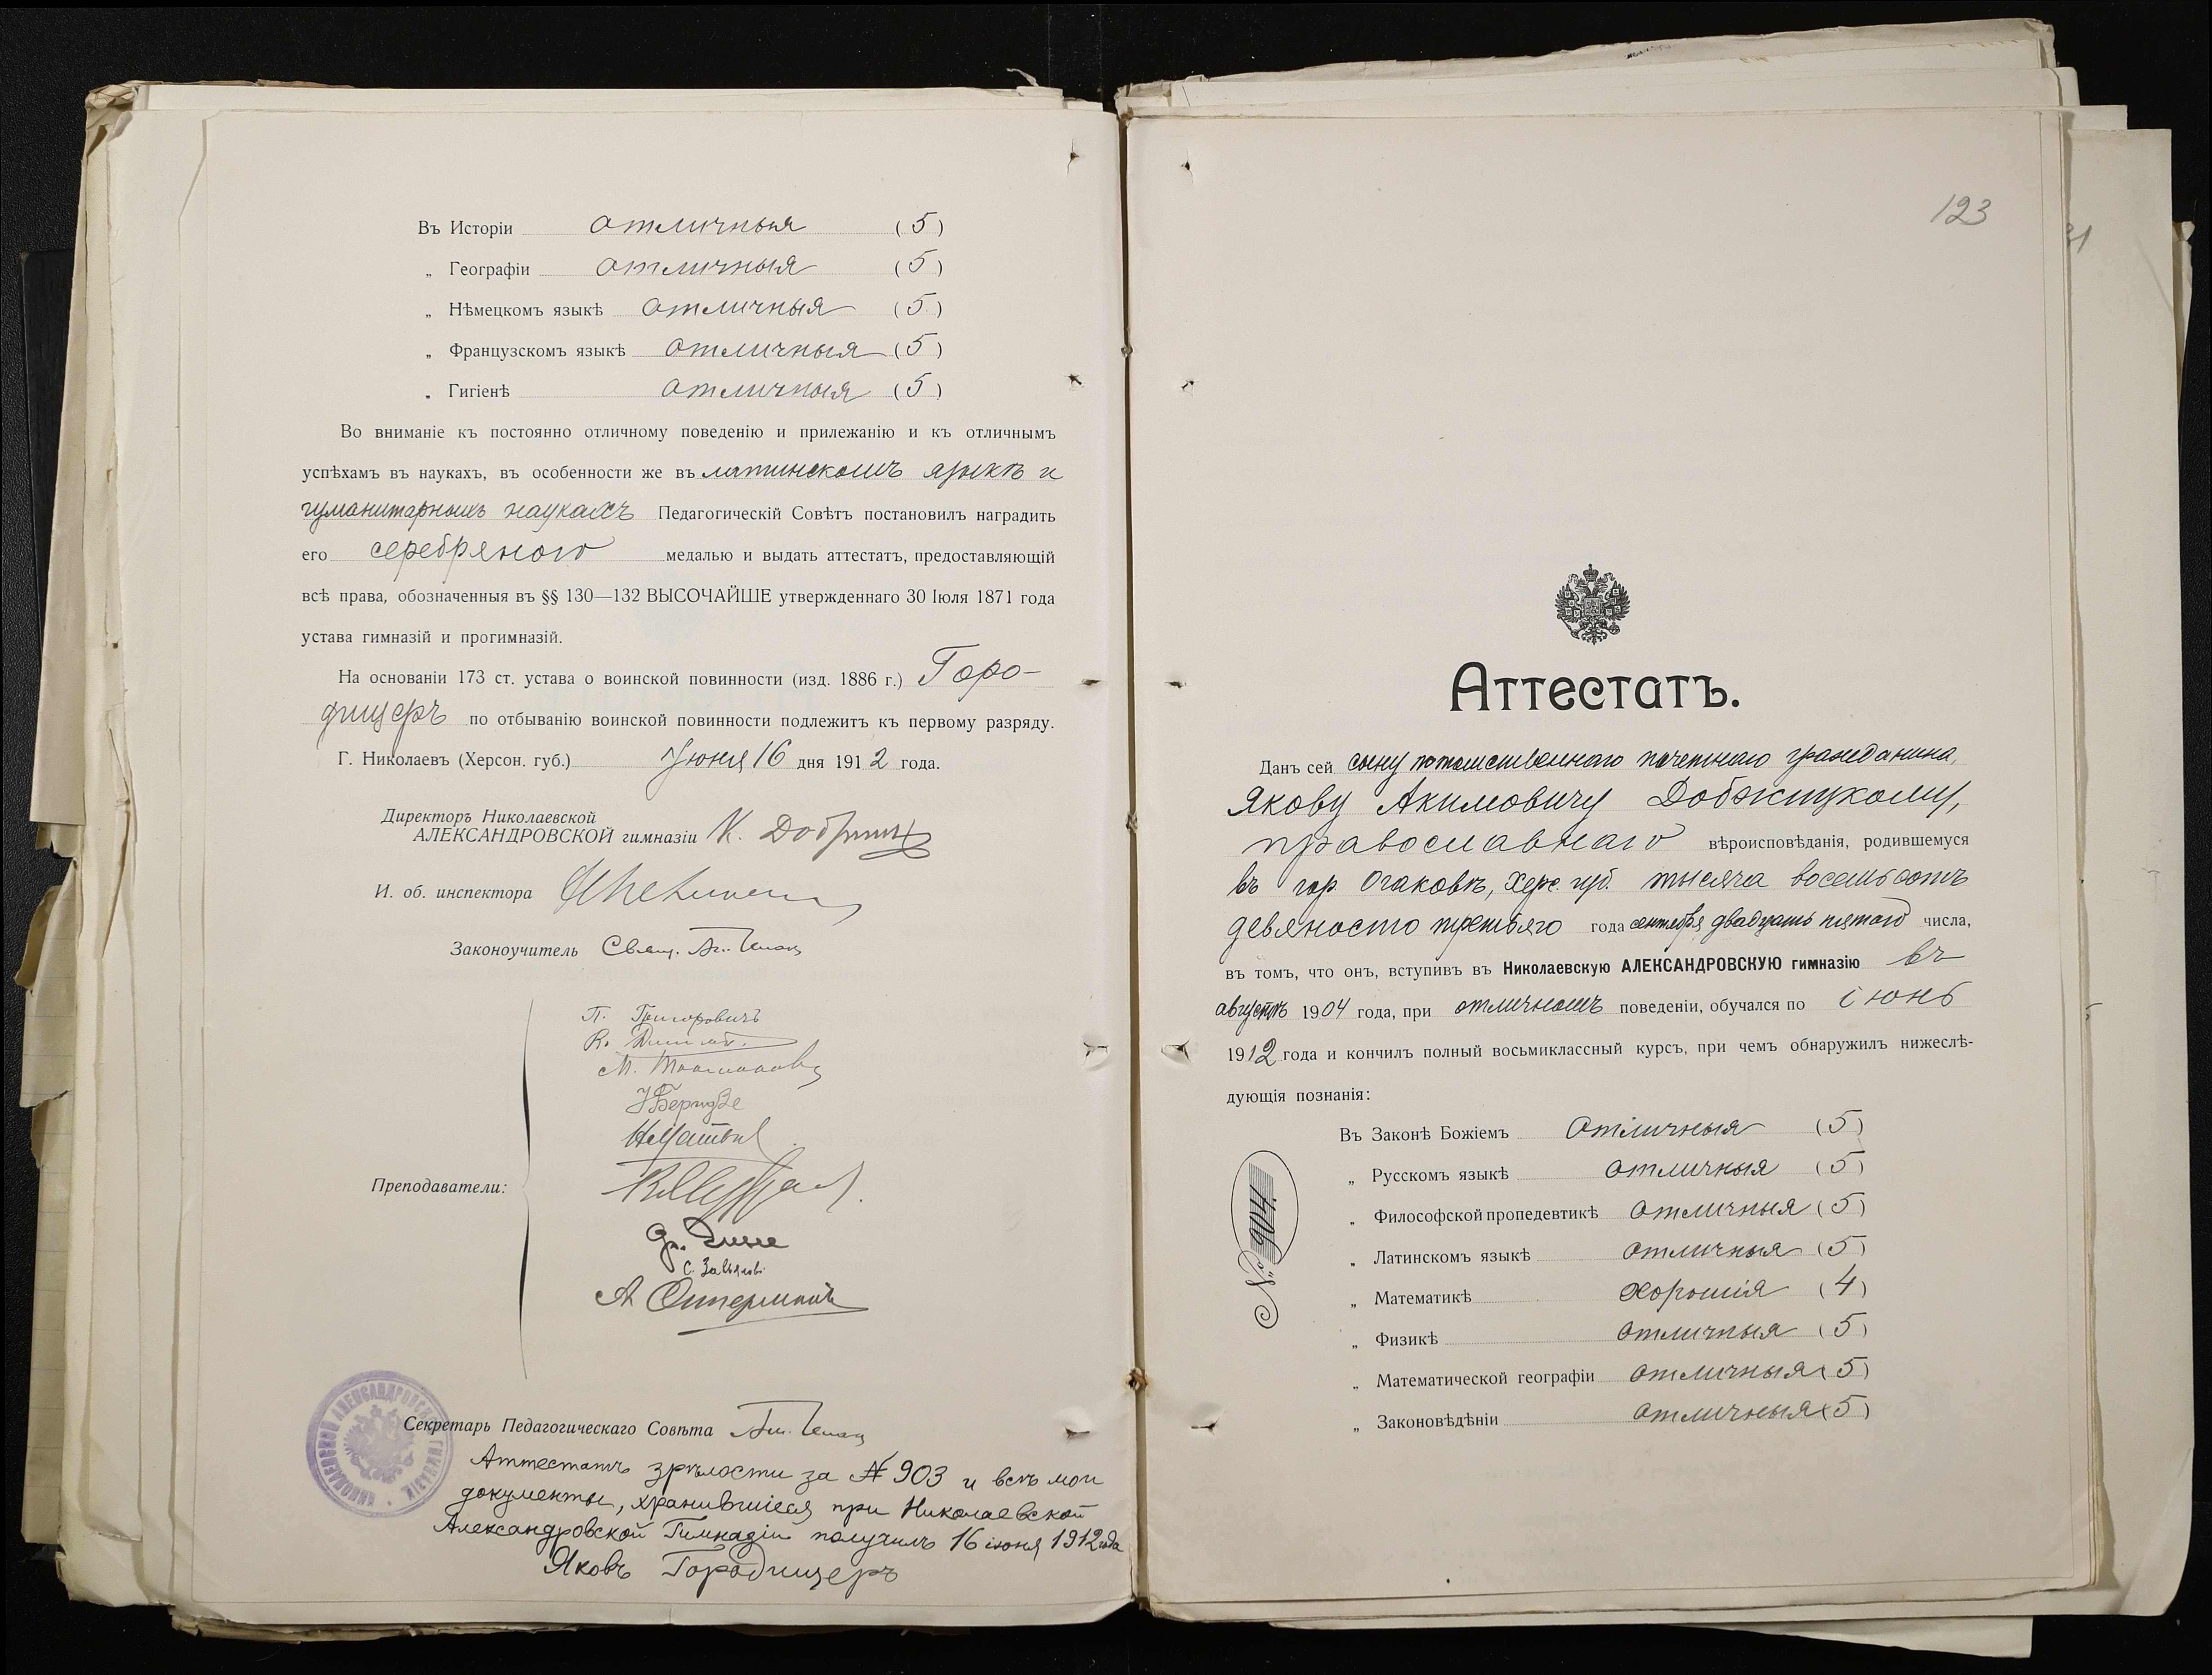 Въ Исторіи отличныя (5)
„ Географіи отличныя (5)
„ Нѣмецкомъ языкѣ отличныя (5)
„ Французскомъ языкѣ отличныя (5)
„ Гигіенѣ отличныя (5)
Во вниманіе къ постоянно отличному поведенію и прилежанію и къ отличнымъ
успѣхамъ въ наукахъ, въ особенности же въ латинскомъ языкѣ и
гуманитарныхъ наукахъ Педагогическій Совѣтъ постановилъ наградить
его серебряною медалью и выдать аттестатъ, предоставляющій
всѣ права, обозначенныя въ §§ 130—132 ВЫСОЧАЙШЕ утвержденнаго 30 Іюля 1871 года
устава гимназій и прогимназій.
На основаніи 173 ст. устава о воинской повинности (изд. 1886 г.) Горо-
дищеръ по отбыванію воинской повинности подлежитъ къ первому разряду.
Г. Николаевъ (Херсон. губ.) Іюня 16 дня 1912 года.
Директоръ Николаевской
АЛЕКСАНДРОВСКОЙ гимназіи К.
И. об. инспектора
Законоучитель Свящ.
П. Григоровичъ
К.
М.
Преподаватели:
А
Секретарь Педагогическаго Совѣта
Аттестатъ зрѣлости за № 903 и всѣ мои
документы, хранившіеся при Николаевской
Александровской Гимназіи получилъ 16 іюня 1912 года
Яковъ Городищеръ
НИКОЛАЕВСКОЙ АЛЕКСАНДРОВСКОЙ ГИМНАЗІИ
123
Аттестатъ.
Данъ сей сыну потомственнаго почетнаго гражданина,
Якову Акимовичу Добжицкому,
православнаго вѣроисповѣданія, родившемуся
въ гор. Очаковѣ, Херс. губ. тысяча восемьсотъ
девяносто третьяго года сентября двадцать пятаго числа,
въ томъ, что онъ, вступивъ въ Николаевскую АЛЕКСАНДРОВСКУЮ гимназію въ
августѣ 1904 года, при отличномъ поведеніи, обучался по іюнь
1912 года и кончилъ полный восьмиклассный курсъ, при чемъ обнаружилъ нижеслѣ-
дующія познанія:
Въ Законѣ Божіемъ отличныя (5)
„ Русскомъ языкѣ отличныя (5)
„ Философской пропедевтикѣ отличныя (5)
„ Латинскомъ языкѣ отличныя (5)
„ Математикѣ хорошія (4)
„ Физикѣ отличныя (5)
„ Математической географіи отличныя (5)
„ Законовѣдѣніи отличныя (5)
№ 904.